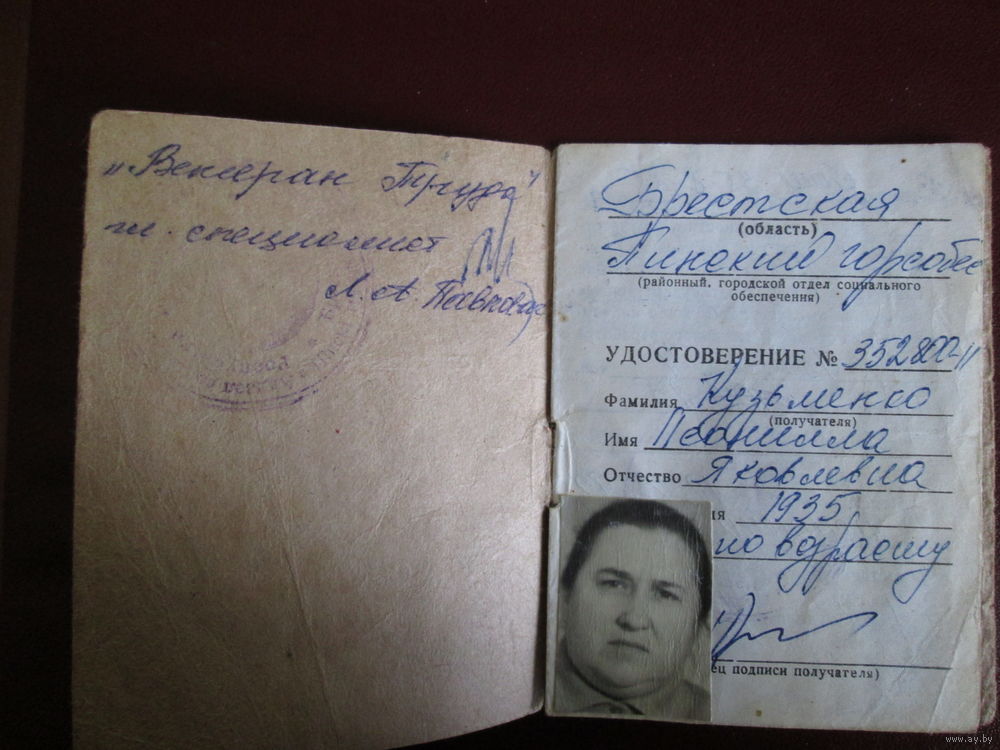 „Ветеран Труда"
гл. специалист
Л. А.
Брестская
(область)
Пинский горсобес
(районный, городской отдел социального
обеспечения)
УДОСТОВЕРЕНИЕ № 352800-11
Фамилия Кузьменко
(получателя)
Имя Леонилла
Отчество Яковлевна
ия 1935
по возрасту
ец подписи получателя)
www.ay.by